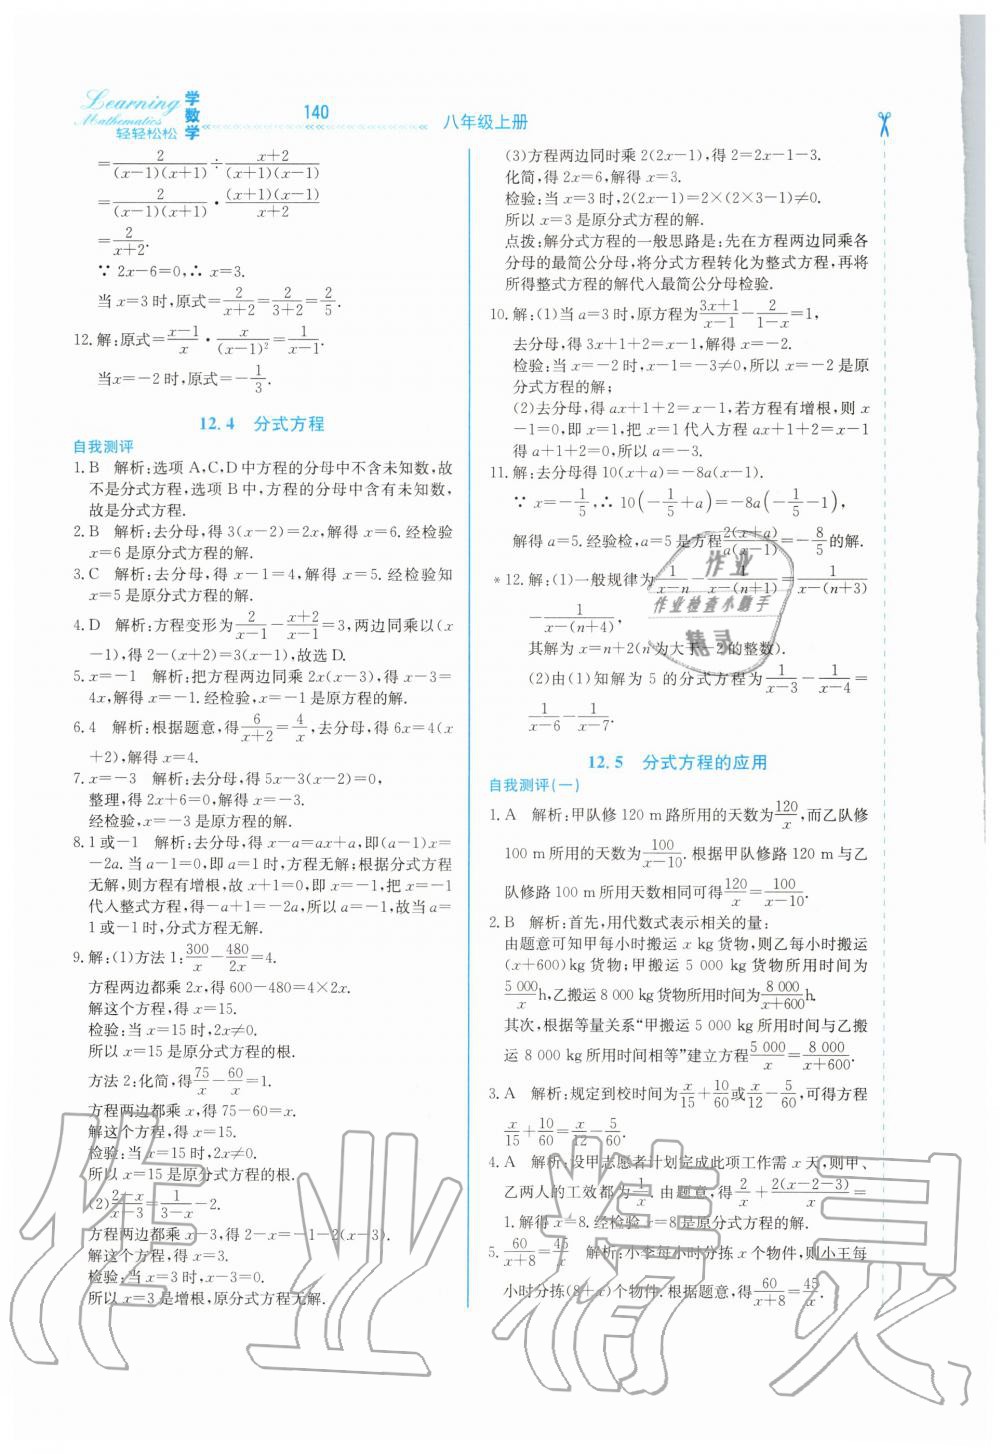 Learning
Mathematics
轻轻松松
学数学
140
八年级上册
=2/((x-1)(x+1))÷(x+2)/((x+1)(x-1))
=2/((x-1)(x+1))•((x+1)(x-1))/(x+2)
=2/(x+2).
∵2x-6=0,∴x=3.
当x=3时,原式=2/(x+2)=2/(3+2)=2/5.
12.解:原式=(x-1)/x•x/(x-1)²=1/(x-1).
当x=-2时,原式=-1/3.
12.4 分式方程
自我测评
1.B 解析:选项A,C,D中方程的分母中不含未知数,故
不是分式方程,选项B中,方程的分母中含有未知数,
故是分式方程.
2.B 解析:去分母,得3(x-2)=2x,解得x=6.经检验
x=6是原分式方程的解.
3.C 解析:去分母,得x-1=4,解得x=5.经检验知
x=5是原分式方程的解.
4.D 解析:方程变形为2/(x-1)-(x+2)/(x-1)=3,两边同乘以(x
-1),得2-(x+2)=3(x-1),故选D.
5.x=-1 解析:把方程两边同乘2x(x-3),得x-3=
4x,解得x=-1.经检验,x=-1是原方程的解.
6.4 解析:根据题意,得6/(x+2)=4/x,去分母,得6x=4(x
+2),解得x=4.
7.x=-3 解析:去分母,得5x-3(x-2)=0,
整理,得2x+6=0,解得x=-3.
经检验,x=-3是原方程的解.
8.1或-1 解析:去分母,得x-a=ax+a,即(a-1)x=
-2a.当a-1=0,即a=1时,方程无解;根据分式方程
无解,则方程有增根,故x+1=0,即x=-1,把x=-1
代入整式方程,得-a+1=-2a,所以a=-1,故当a=
1或-1时,分式方程无解.
9.解:(1)方法1:300/x-480/2x=4.
方程两边都乘2x,得600-480=4×2x.
解这个方程,得x=15.
检验:当x=15时,2x≠0.
所以x=15是原分式方程的根.
方法2:化简,得75/x-60/x=1.
方程两边都乘x,得75-60=x.
解这个方程,得x=15.
检验:当x=15时,2x≠0.
所以x=15是原分式方程的根.
(2)(2-x)/(x-3)=1/(3-x)-2.
方程两边都乘x-3,得2-x=-1-2(x-3).
解这个方程,得x=3.
检验:当x=3时,x-3=0.
所以x=3是增根,原分式方程无解.
(3)方程两边同时乘2(2x-1),得2=2x-1-3.
化简,得2x=6,解得x=3.
检验:当x=3时,2(2x-1)=2×(2×3-1)≠0.
所以x=3是原分式方程的解.
点拨:解分式方程的一般思路是:先在方程两边同乘各
分母的最简公分母,将分式方程转化为整式方程,再将
所得整式方程的解代入最简公分母检验.
10.解:(1)当a=3时,原方程为(3x+1)/(x-1)-2/(1-x)=1,
去分母,得3x+1+2=x-1,解得x=-2.
检验:当x=-2时,x-1=-3≠0,所以x=-2是原
分式方程的解;
(2)去分母,得ax+1+2=x-1,若方程有增根,则x
-1=0,即x=1,把x=1代入方程ax+1+2=x-1
得a+1+2=0,所以a=-3.
11.解:去分母得10(x+a)=-8a(x-1).
∵x=-1/5,∴10(-1/5+a)=-8a(-1/5-1),
解得a=5.经检验,a=5是方程2(x+a)/a(x-1)=-8/5的解.
*12.解:(1)一般规律为1/(x-n)-1/(x-(n+1))=1/(x-(n+3))
-1/(x-(n+4)),
其解为x=n+2(n为大于-2的整数).
(2)由(1)知解为5的分式方程为1/(x-3)-1/(x-4)=
1/(x-6)-1/(x-7).
12.5 分式方程的应用
自我测评(一)
1.A 解析:甲队修120 m路所用的天数为120/x,而乙队修
100 m所用的天数为100/(x-10).根据甲队修路120 m与乙
队修路100 m所用天数相同可得120/x=100/(x-10).
2.B 解析:首先,用代数式表示相关的量:
由题意可知甲每小时搬运x kg货物,则乙每小时搬运
(x+600)kg货物;甲搬运5 000 kg货物所用时间为
5 000/x h,乙搬运8 000 kg货物所用时间为8 000/(x+600) h.
其次,根据等量关系“甲搬运5 000 kg所用时间与乙搬
运8 000 kg所用时间相等”建立方程5 000/x=8 000/(x+600).
3.A 解析:规定到校时间为x/15+10/60或x/12-5/60,可得方程
x/15+10/60=x/12-5/60.
4.A 解析:设甲志愿者计划完成此项工作需x天,则甲、
乙两人的工效都为1/x.由题意,得2/x+2(x-2-3)/x=
1.解得x=8.经检验x=8是原分式方程的解.
5.60/(x+8)=45/x 解析:小李每小时分拣x个物件,则小王每
小时分拣(8+x)个物件.根据题意,得60/(x+8)=45/x.
作业
作业检查小助手
精灵
作业精灵